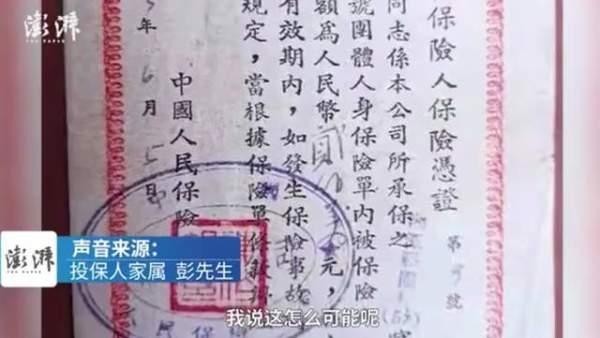 澎湃
THE PAPER
保險人保險憑證
第 號
同志係本公司所承保之
號團體人身保險單內被保險
額爲人民幣 元，
有效期內，如發生保險事故
規定，當根據保險單條款
中國人民保險
年6月5日
澎湃
声音来源：
投保人家属 彭先生
我说这怎么可能呢